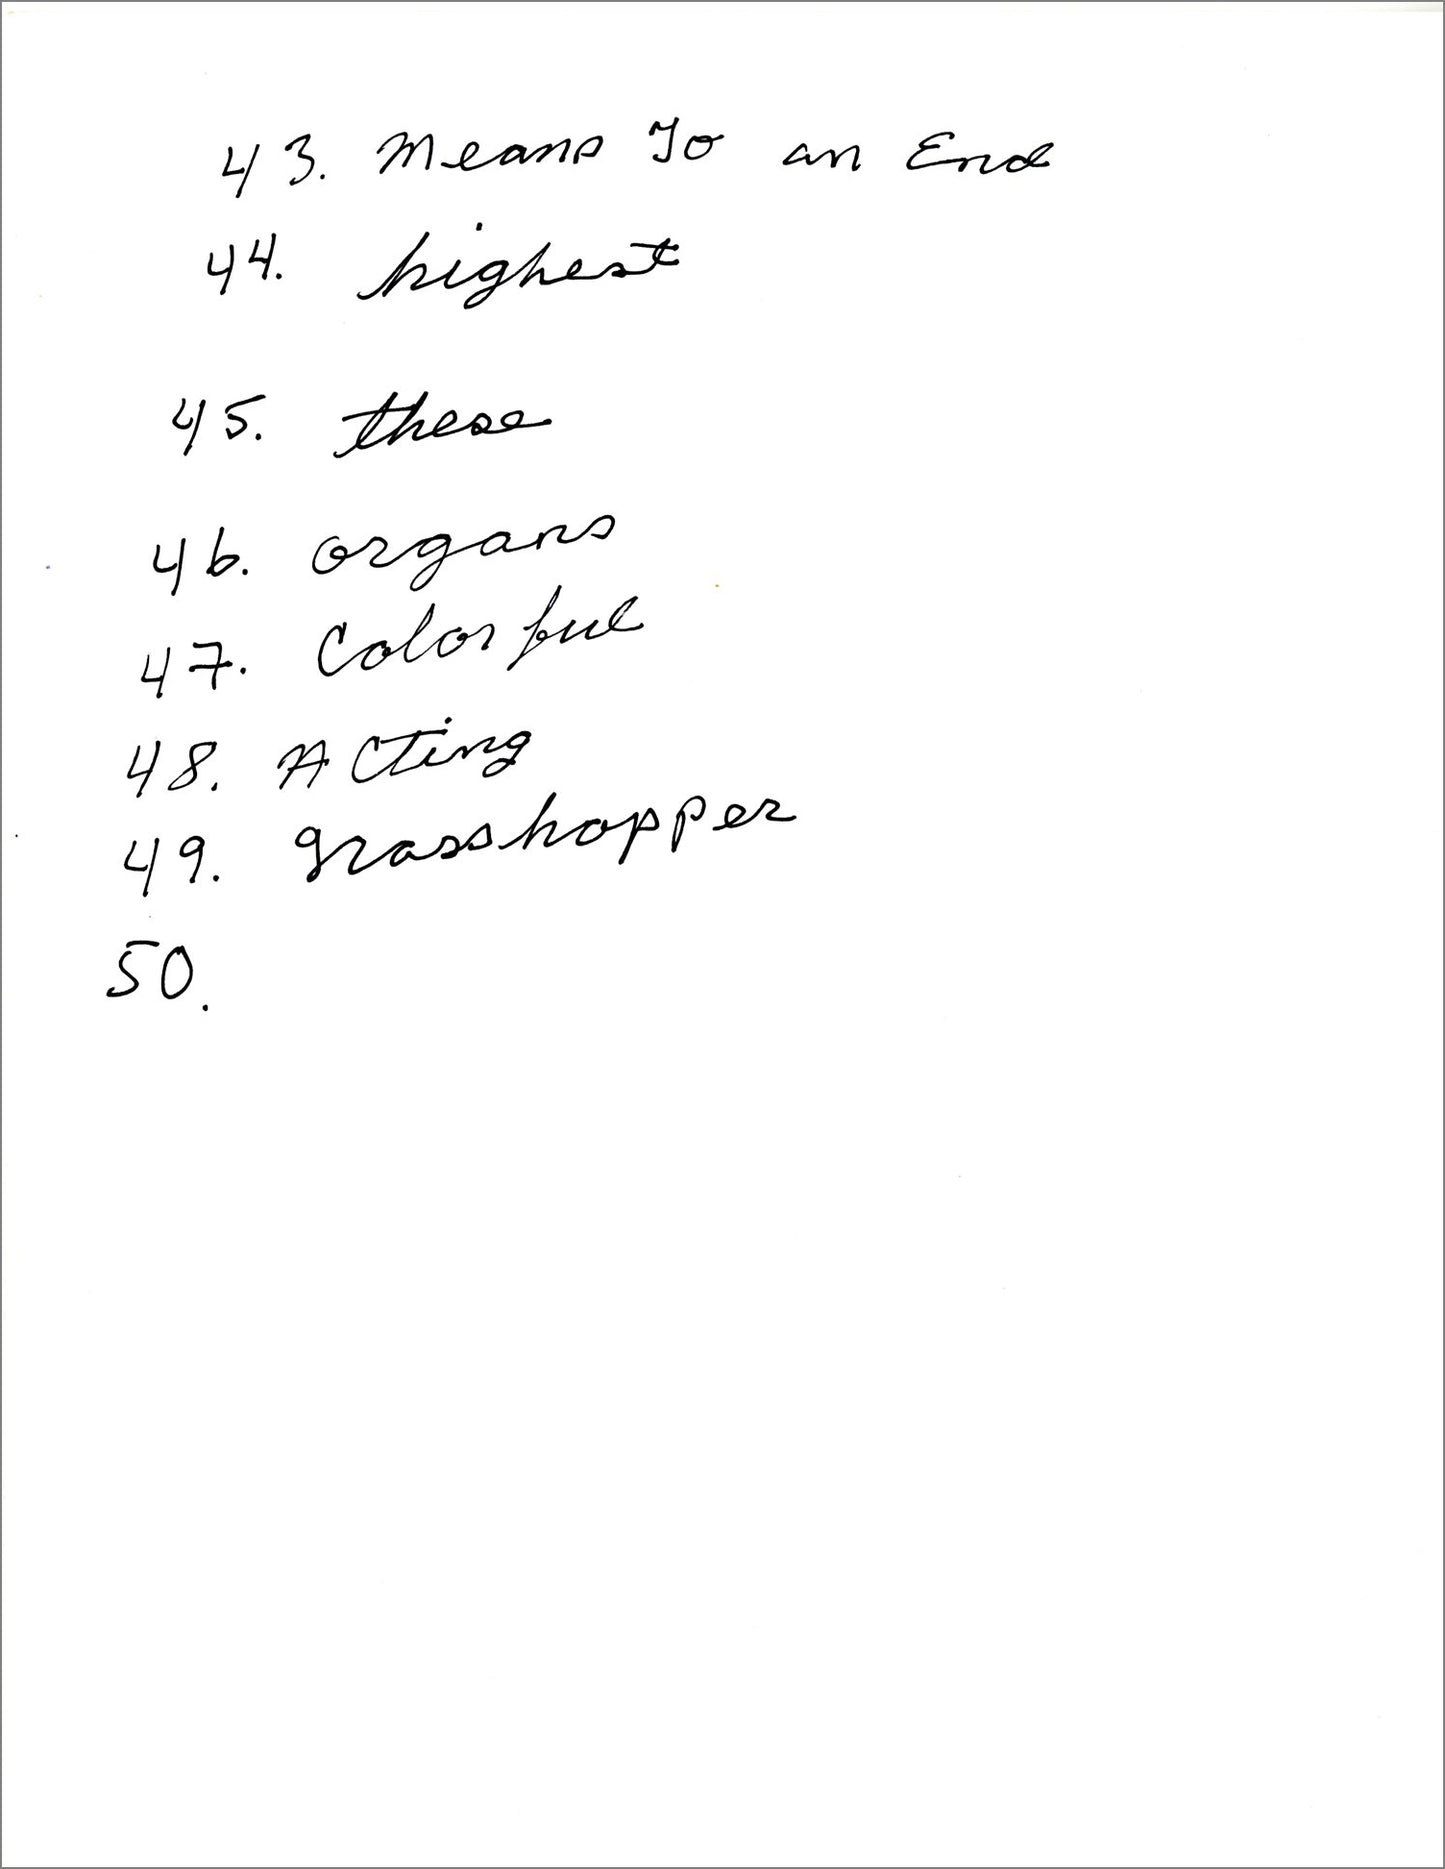 43. Means To an End
44. highest
45. these
46. organs
47. Colorful
48. Acting
49. grasshopper
50.